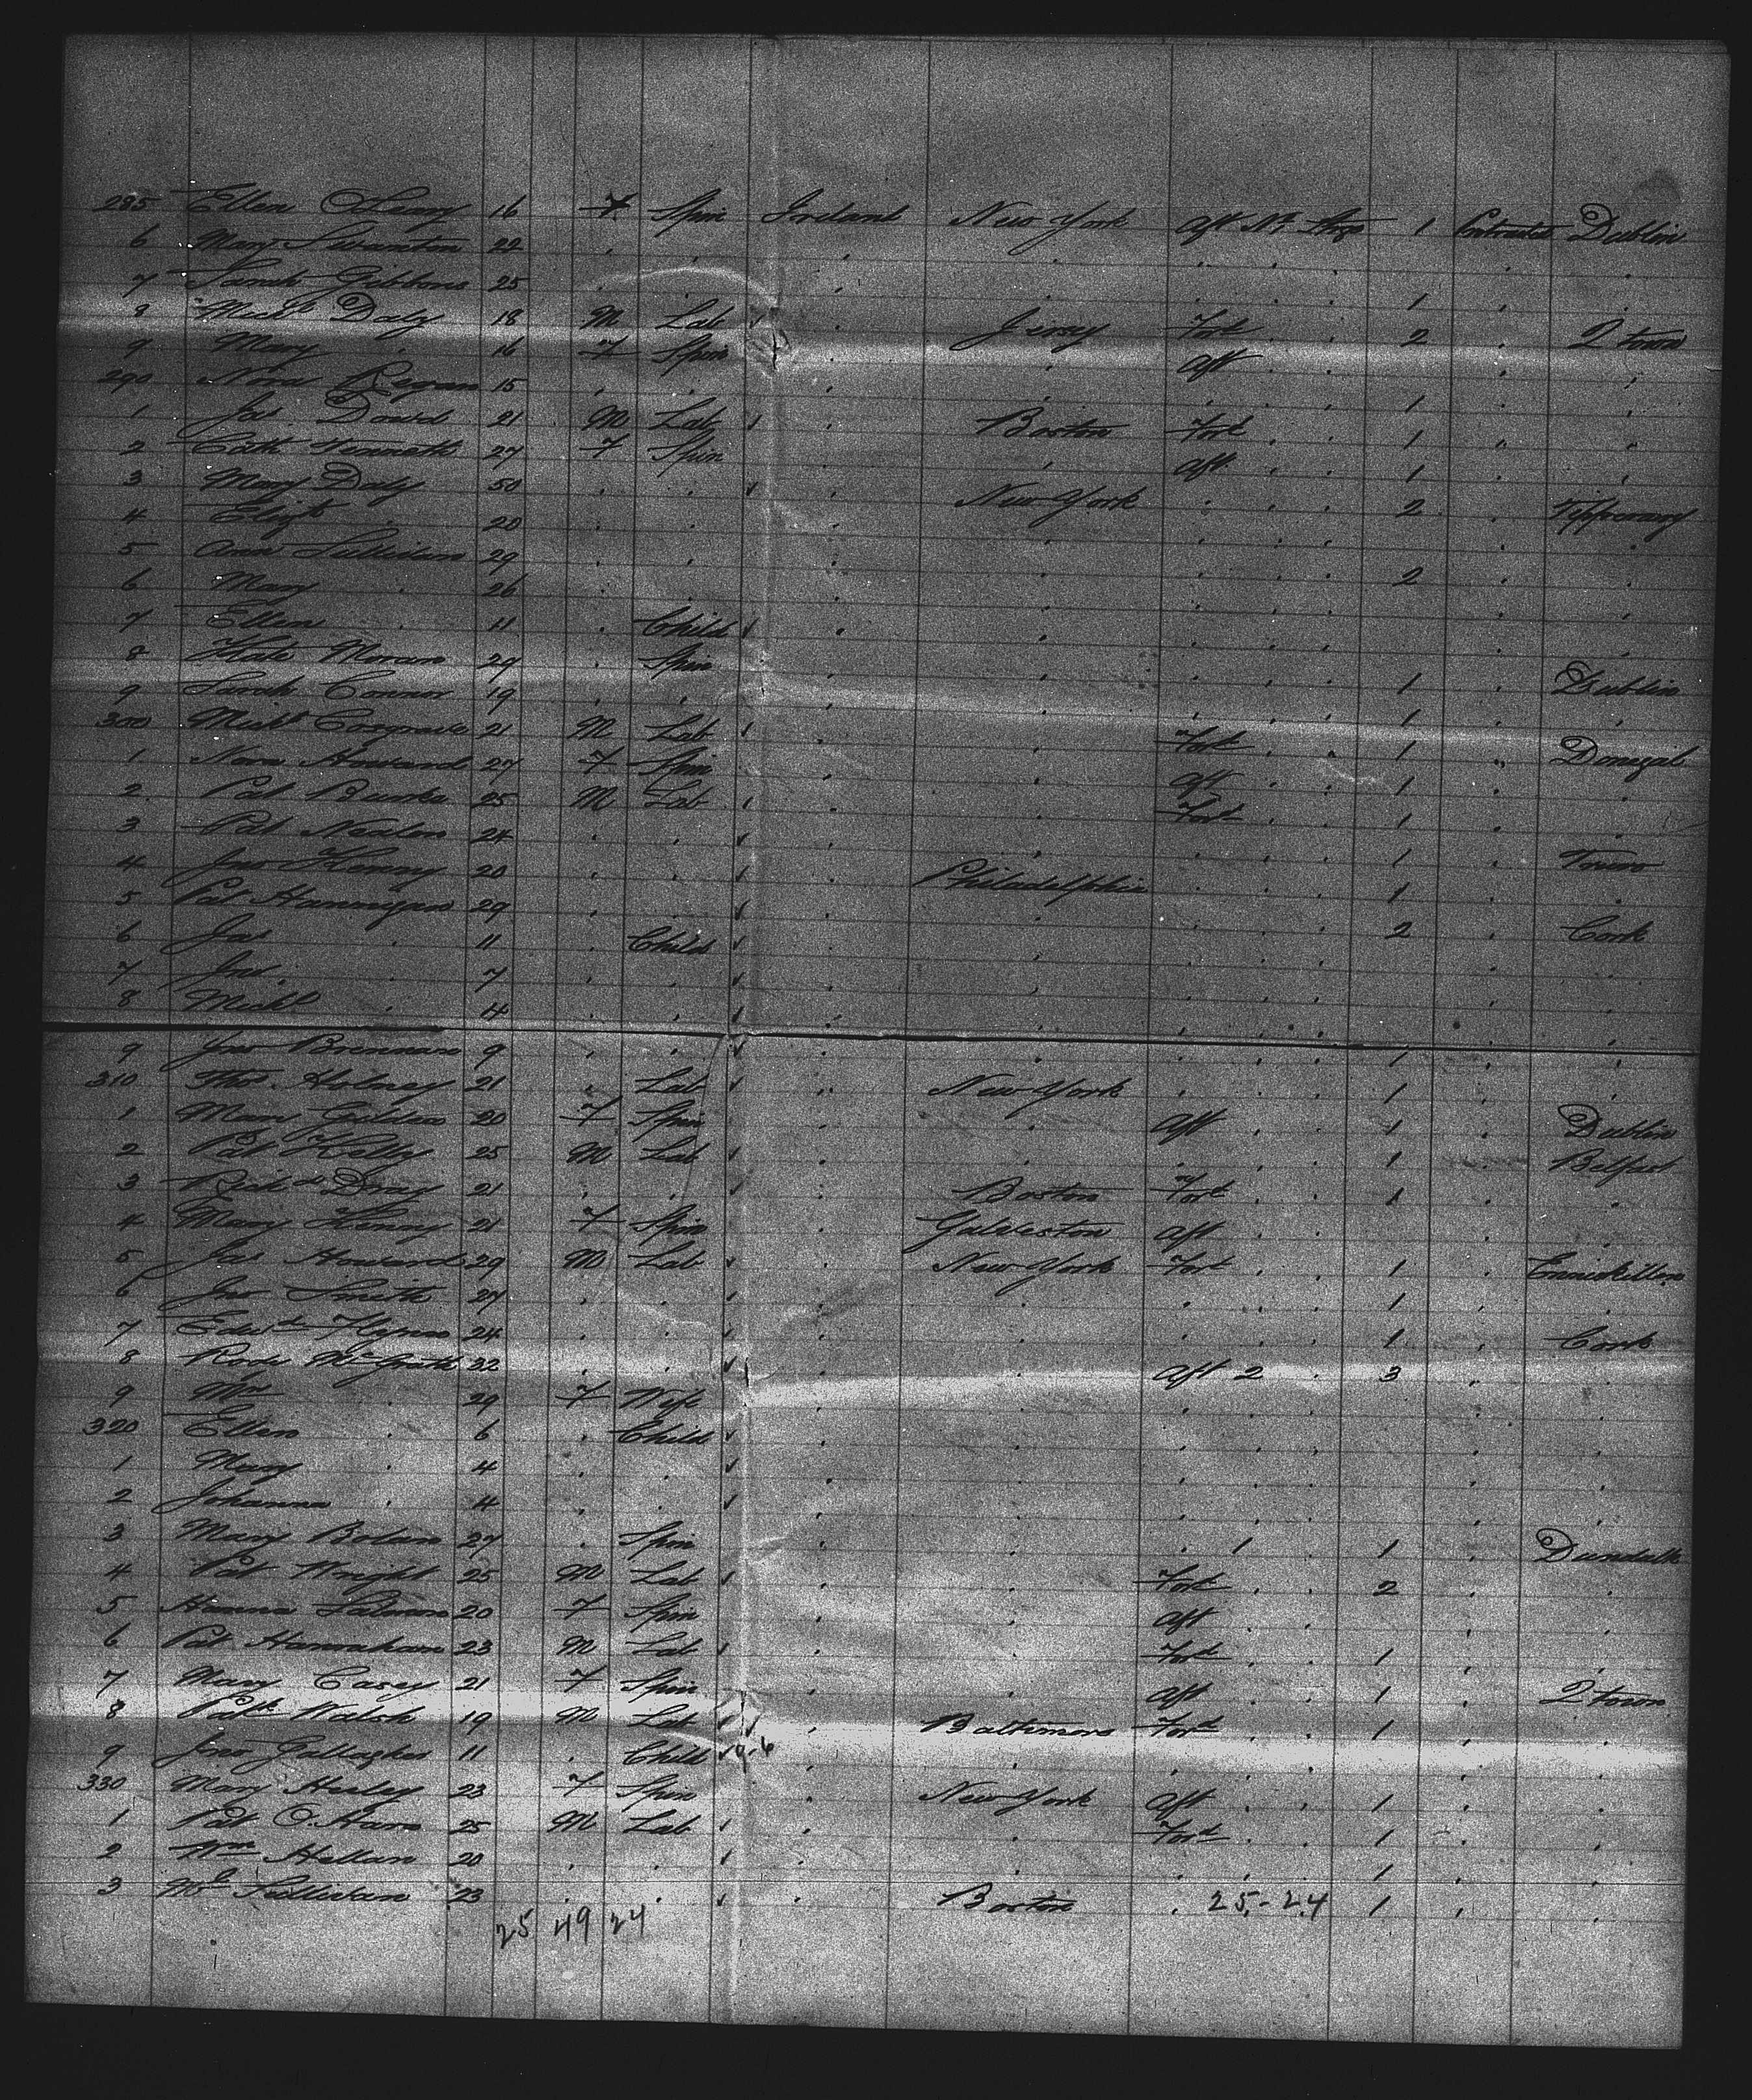 285 Ellen Henry 16 F Spin Ireland New York Aft No 1 Strge 1 Contracted Dublin
6 Mary Swanton 22 . . . . . . . . .
7 Sarah Gibbons 25 . . . . . . . 1 . .
8 Michl Daly 18 M Lab . Jersey Ford . . 2 . Q town
9 Mary . 16 F Spin . . Aft . . . .
290 Nora Regan 15 . . . . . . . 1 . .
1 Jas Dowd 21 M Lab . Boston Ford . . 1 . .
2 Cath 27 F Spin . . Aft . . 1 . .
3 Mary Daly 50 . . . New York . . . 2 . Tipperary
4 Elizth . 20 . . . . . . . . .
5 Ann Sullivan 29 . . . . . . . 2 . .
6 Mary . 26 . . . . . . . . .
7 Ellen . 11 . Child . . . . . . .
8 Kate Moran 29 . Spin . . . . . 1 . Dublin
9 Sarah Connor 19 . . . . . . . 1 . .
300 Michl Cosgrave 21 M Lab . . Ford . . 1 . Donegal
1 Nora Howard 27 F Spin . . Aft . . 1 . .
2 Pat Burke 25 M Lab . . Ford . . 1 . .
3 Pat 24 . . . . . . . 1 .
4 Jno Henry 20 . . . Philadelphia . . . 1 . .
5 Pat Hannigan 29 . . . . . . . 2 . Cork
6 Jas . 11 . Child . . . . . . .
7 Jno . 7 . . . . . . . . .
8 Michl . 4 . . . . . . . . .
9 Jno Brennan 9 . . . . . . . 1 . .
310 Thos 21 . Lab . New York . . . 1 . .
1 Mary 20 F Spin . . Aft . . 1 . Dublin
2 Pat Kelly 25 M Lab . . . . . 1 . Belfast
3 Richd Dray 21 . . . Boston Ford . . 1 . .
4 Mary Henry 21 F Spin . Galveston Aft . . . .
5 Jas Howard 29 M Lab . New York Ford . . 1 . Enniskillen
6 Jno Smith 27 . . . . . . . 1 . .
7 Edwd Flynn 24 . . . . . . . 1 . Cork
8 Rody McGrath 32 . . . . Aft 2 . 3 . .
9 Mrs . 29 F Wife . . . . . . .
320 Ellen . 6 . Child . . . . . . .
1 Mary . 4 . . . . . . . . .
2 Johanna . 4 . . . . . . . . .
3 Mary Bolan 27 . Spin . . . 1 . 1 . Dundalk
4 Pat Wright 25 M Lab . . Ford . . 2 . .
5 Hanna 20 F Spin . . Aft . . . .
6 Pat Hanrahan 23 M Lab . . Ford . . 1 . .
7 Mary Casey 21 F Spin . . Aft . . 1 . Q town
8 Patk Walsh 19 M Lab . Baltimore Ford . . 1 . .
9 Jno Gallagher 11 . Child . . . . . . .
330 Mary Healey 23 F Spin . New York Aft . . 1 . .
1 Pat O'Hara 25 M Lab . . Ford . . 1 . .
2 Wm Hallan 20 . . . . . . . 1 . .
3 Ml Sullivan 23 . . . Boston . 25-24 1 . .
25 49 24